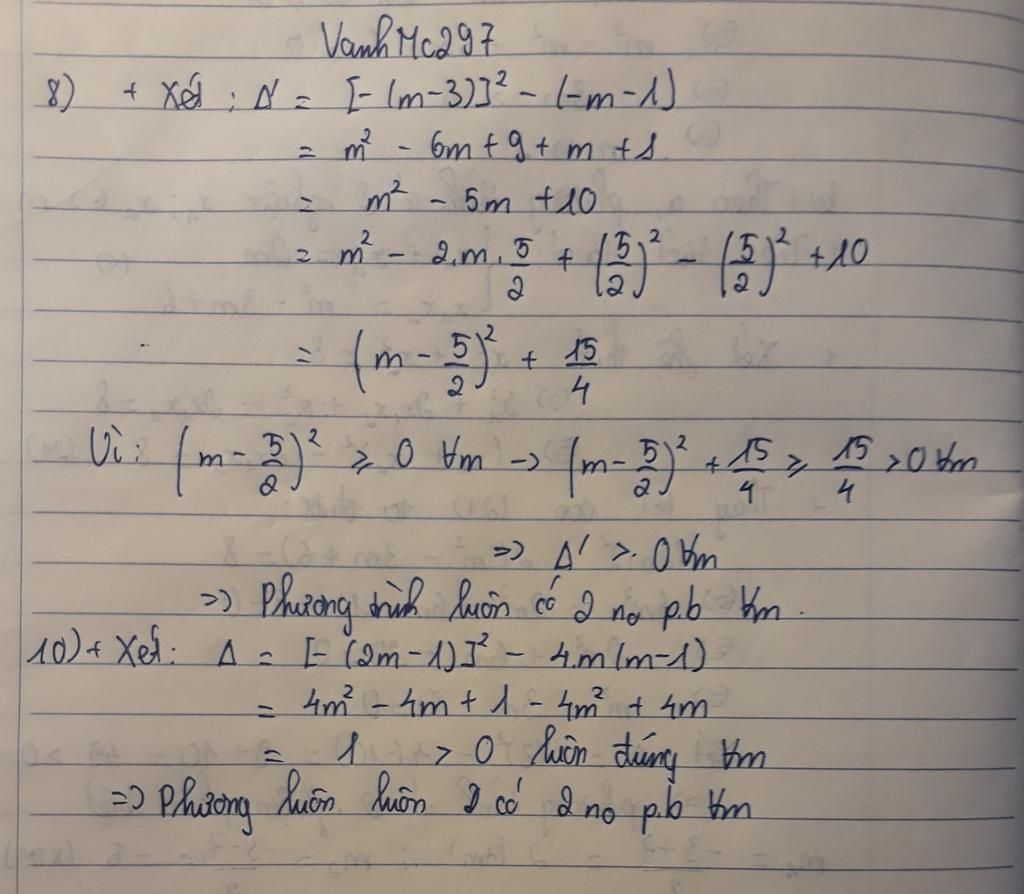 VanhMc297
8) + Xét : Δ' = [-(m-3)]² - (-m-1)
= m² - 6m + 9 + m + 1
= m² - 5m + 10
= m² - 2.m.5/2 + (5/2)² - (5/2)² + 10
= (m - 5/2)² + 15/4
Vì: (m - 5/2)² ≥ 0 ∀m → (m - 5/2)² + 15/4 ≥ 15/4 > 0 ∀m
=> Δ' > 0 ∀m
=> Phương trình luôn có 2 no p.b ∀m.
10) + Xét: Δ = [-(2m-1)]² - 4.m(m-1)
= 4m² - 4m + 1 - 4m² + 4m
= 1 > 0 luôn đúng ∀m
=> Phương luôn luôn 2 có 2 no p.b ∀m